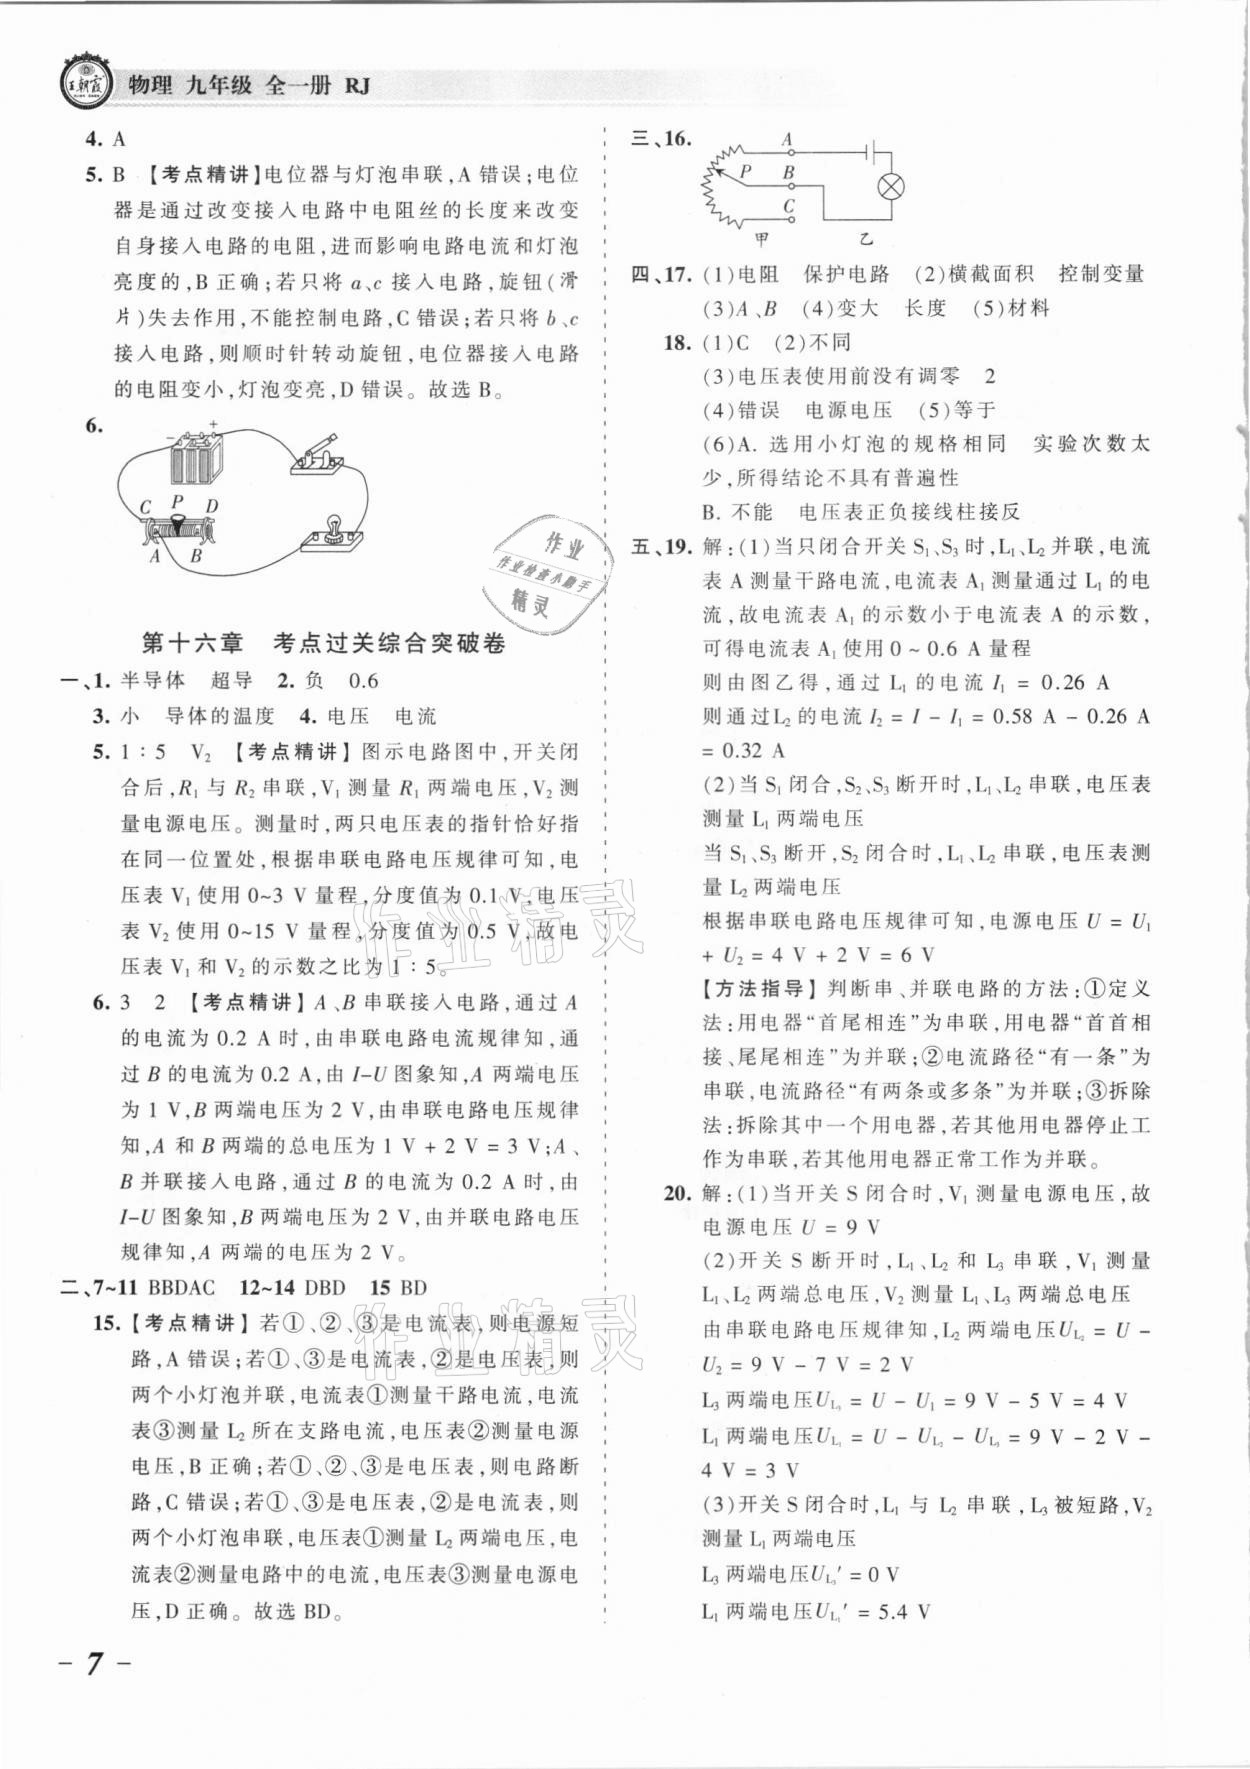 王朝霞
物理 九年级 全一册 RJ
4. A
5. B 【考点精讲】电位器与灯泡串联,A 错误;电位
器是通过改变接入电路中电阻丝的长度来改变
自身接入电路的电阻,进而影响电路电流和灯泡
亮度的,B 正确;若只将 a、c 接入电路,旋钮(滑
片)失去作用,不能控制电路,C 错误;若只将 b、c
接入电路,则顺时针转动旋钮,电位器接入电路
的电阻变小,灯泡变亮,D 错误。故选 B。
6.
− +
C P D
A B
第十六章 考点过关综合突破卷
一、1. 半导体 超导 2. 负 0.6
3. 小 导体的温度 4. 电压 电流
5. 1∶5 V₂ 【考点精讲】图示电路图中,开关闭
合后,R₁ 与 R₂ 串联,V₁ 测量 R₁ 两端电压,V₂ 测
量电源电压。测量时,两只电压表的指针恰好指
在同一位置处,根据串联电路电压规律可知,电
压表 V₁ 使用 0~3 V 量程,分度值为 0.1 V,电压
表 V₂ 使用 0~15 V 量程,分度值为 0.5 V,故电
压表 V₁ 和 V₂ 的示数之比为 1∶5。
6. 3 2 【考点精讲】A、B 串联接入电路,通过 A
的电流为 0.2 A 时,由串联电路电流规律知,通
过 B 的电流为 0.2 A,由 I-U 图象知,A 两端电压
为 1 V,B 两端电压为 2 V,由串联电路电压规律
知,A 和 B 两端的总电压为 1 V + 2 V = 3 V;A、
B 并联接入电路,通过 B 的电流为 0.2 A 时,由
I-U 图象知,B 两端电压为 2 V,由并联电路电压
规律知,A 两端的电压为 2 V。
二、7~11 BBDAC 12~14 DBD 15 BD
15.【考点精讲】若①、②、③是电流表,则电源短
路,A 错误;若①、③是电流表,②是电压表,则
两个小灯泡并联,电流表①测量干路电流,电流
表③测量 L₂ 所在支路电流,电压表②测量电源
电压,B 正确;若①、②、③是电压表,则电路断
路,C 错误;若①、③是电压表,②是电流表,则
两个小灯泡串联,电压表①测量 L₂ 两端电压,电
流表②测量电路中的电流,电压表③测量电源电
压,D 正确。故选 BD。
– 7 –
三、16.
A
P B
C
甲 乙
四、17. (1)电阻 保护电路 (2)横截面积 控制变量
(3)A、B (4)变大 长度 (5)材料
18. (1)C (2)不同
(3)电压表使用前没有调零 2
(4)错误 电源电压 (5)等于
(6)A. 选用小灯泡的规格相同 实验次数太
少,所得结论不具有普遍性
B. 不能 电压表正负接线柱接反
五、19. 解:(1)当只闭合开关 S₁、S₃ 时,L₁、L₂ 并联,电流
表 A 测量干路电流,电流表 A₁ 测量通过 L₁ 的电
流,故电流表 A₁ 的示数小于电流表 A 的示数,
可得电流表 A₁ 使用 0 ~ 0.6 A 量程
则由图乙得,通过 L₁ 的电流 I₁ = 0.26 A
则通过L₂ 的电流 I₂ = I − I₁ = 0.58 A − 0.26 A
= 0.32 A
(2)当 S₁ 闭合,S₂、S₃ 断开时,L₁、L₂ 串联,电压表
测量 L₁ 两端电压
当 S₁、S₃ 断开,S₂ 闭合时,L₁、L₂ 串联,电压表测
量 L₂ 两端电压
根据串联电路电压规律可知,电源电压 U = U₁
+ U₂ = 4 V + 2 V = 6 V
【方法指导】判断串、并联电路的方法:①定义
法:用电器“首尾相连”为串联,用电器“首首相
接、尾尾相连”为并联;②电流路径“有一条”为
串联,电流路径“有两条或多条”为并联;③拆除
法:拆除其中一个用电器,若其他用电器停止工
作为串联,若其他用电器正常工作为并联。
20. 解:(1)当开关 S 闭合时,V₁ 测量电源电压,故
电源电压 U = 9 V
(2)开关 S 断开时,L₁、L₂ 和 L₃ 串联,V₁ 测量
L₁、L₂ 两端总电压,V₂ 测量 L₁、L₃ 两端总电压
由串联电路电压规律知,L₂ 两端电压U_L₂ = U −
U₂ = 9 V − 7 V = 2 V
L₃ 两端电压U_L₃ = U − U₁ = 9 V − 5 V = 4 V
L₁ 两端电压U_L₁ = U − U_L₂ − U_L₃ = 9 V − 2 V −
4 V = 3 V
(3)开关 S 闭合时,L₁ 与 L₂ 串联,L₃ 被短路,V₂
测量 L₁ 两端电压
L₃ 两端电压U_L₃′ = 0 V
L₁ 两端电压U_L₁′ = 5.4 V
作业
作业检查小助手
精灵
作业精灵
作业精灵